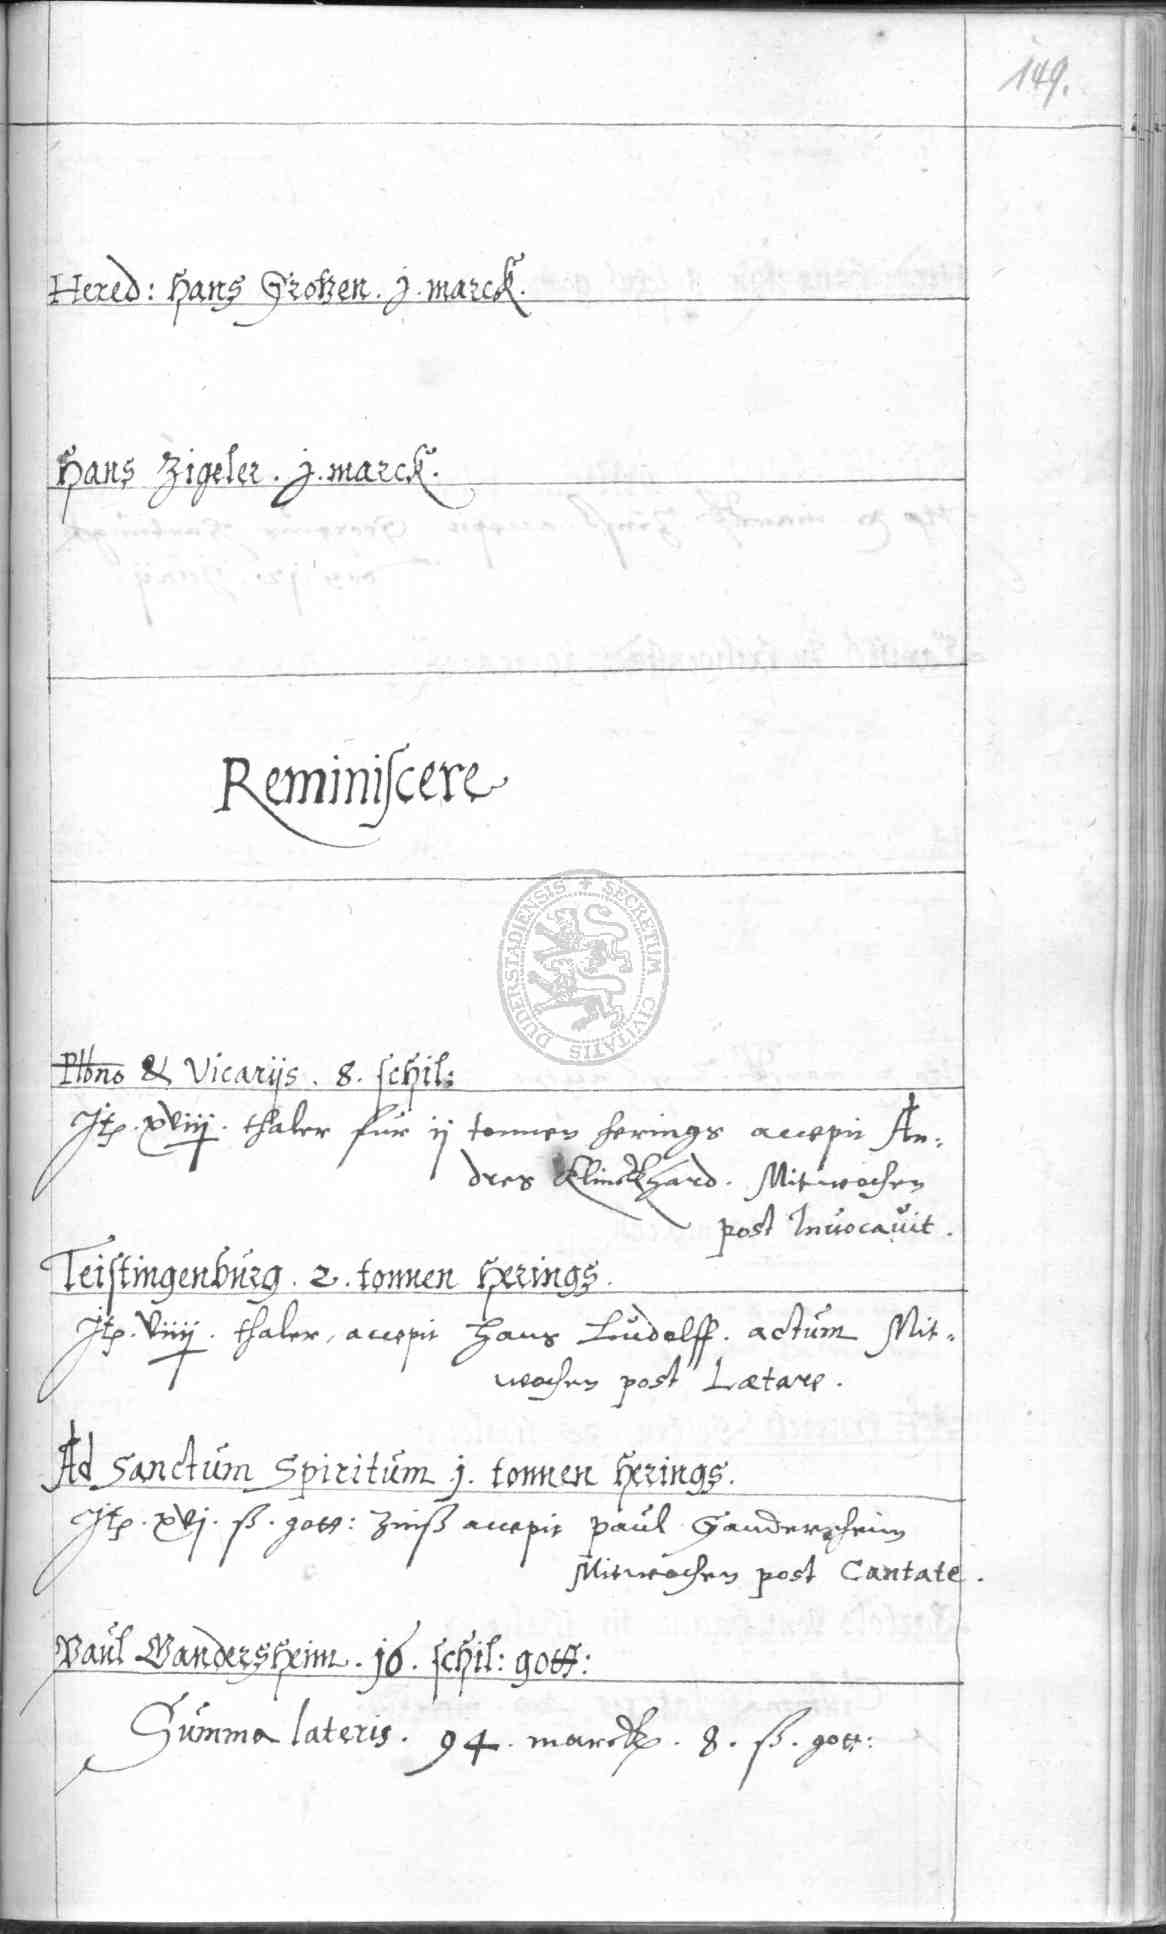 149.
Hered: Hans Grotzen. j. marck.
Hans Zigeler. j. marck.
Reminiscere
DUDERSTADIENSIS + SECRETUM CIVITATIS
& Vicarijs. 8. schil:
Jtp. xviiij. thaler für ij tonnen herings accepit An-
dres Klinckhard. Mitwochen
post Inuocauit.
Teistingenburg. 2. tonnen Herings.
Jtp. viiij. thaler, accepit Hans Ludolff. actum Mit-
wochen post Lætare.
Ad Sanctum Spiritum j. tonnen Herings.
Jtp. xvj. ß. gott: Zinß accepit Paul Gandersheim
Mitwochen post Cantate.
Paul Gandersheim. 16. schil: gott:
Summa lateris. 94. marck. 8. ß. gott: